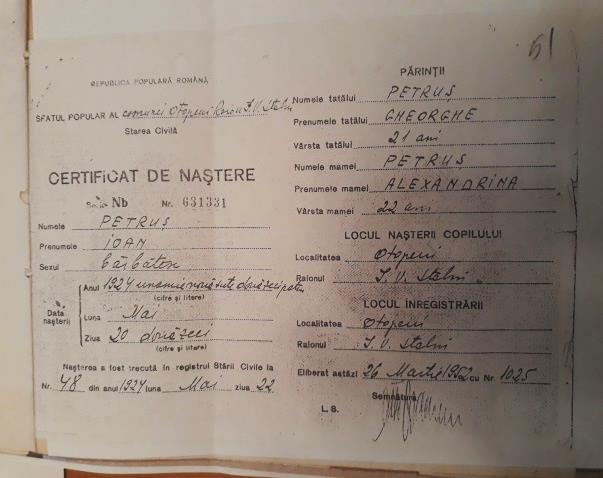 61
REPUBLICA POPULARĂ ROMÂNĂ
SFATUL POPULAR AL comunei Otopeni Raion I.V. Stalin
Starea Civilă
CERTIFICAT DE NAŞTERE
Seria Nb Nr. 631331
Numele PETRUŞ
Prenumele IOAN
Sexul bărbătesc
Data naşterii
Anul 1924 unamienouăsute douăzecipatru
(cifre şi litere)
Luna Mai
Ziua 20 douăzeci
(cifre şi litere)
Naşterea a fost trecută în registrul Stării Civile la
Nr. 48 din anul 1924 luna Mai ziua 22
PĂRINŢII
Numele tatălui PETRUŞ
Prenumele tatălui GHEORGHE
Vârsta tatălui 21 ani
Numele mamei PETRUŞ
Prenumele mamei ALEXANDRINA
Vârsta mamei 22 ani
LOCUL NAŞTERII COPILULUI
Localitatea Otopeni
Raionul I. V. Stalin
LOCUL ÎNREGISTRĂRII
Localitatea Otopeni
Raionul I. V. Stalin
Eliberat astăzi 26 Martie 1952 cu Nr. 1025
Semnătura
L. S.